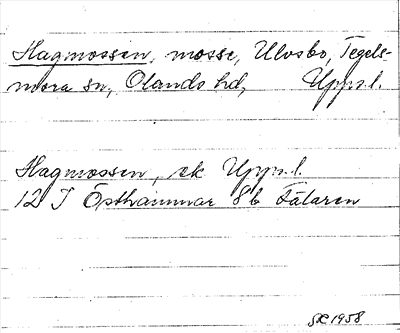 Hagmossen, mosse, Ulvsbo, Tegels-
mora sn, Olands hd, Upps.l.
Hagmossen, ek Upps.l.
12 I Östhammar 8b Fälaren
1958